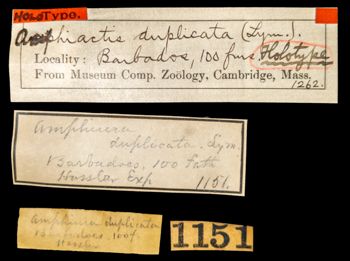 HOLOTYPE.
Amphiactis duplicata (Lym.).
Locality: Barbados, 100 fms. Holotype
From Museum Comp. Zoölogy, Cambridge, Mass.
1262.
Amphiura
duplicata. Lym.
Barbadoes, 100 fath
Hassler Exp 1151.
Amphiura duplicata
Barbadoes. 100f.
Hassler
1151